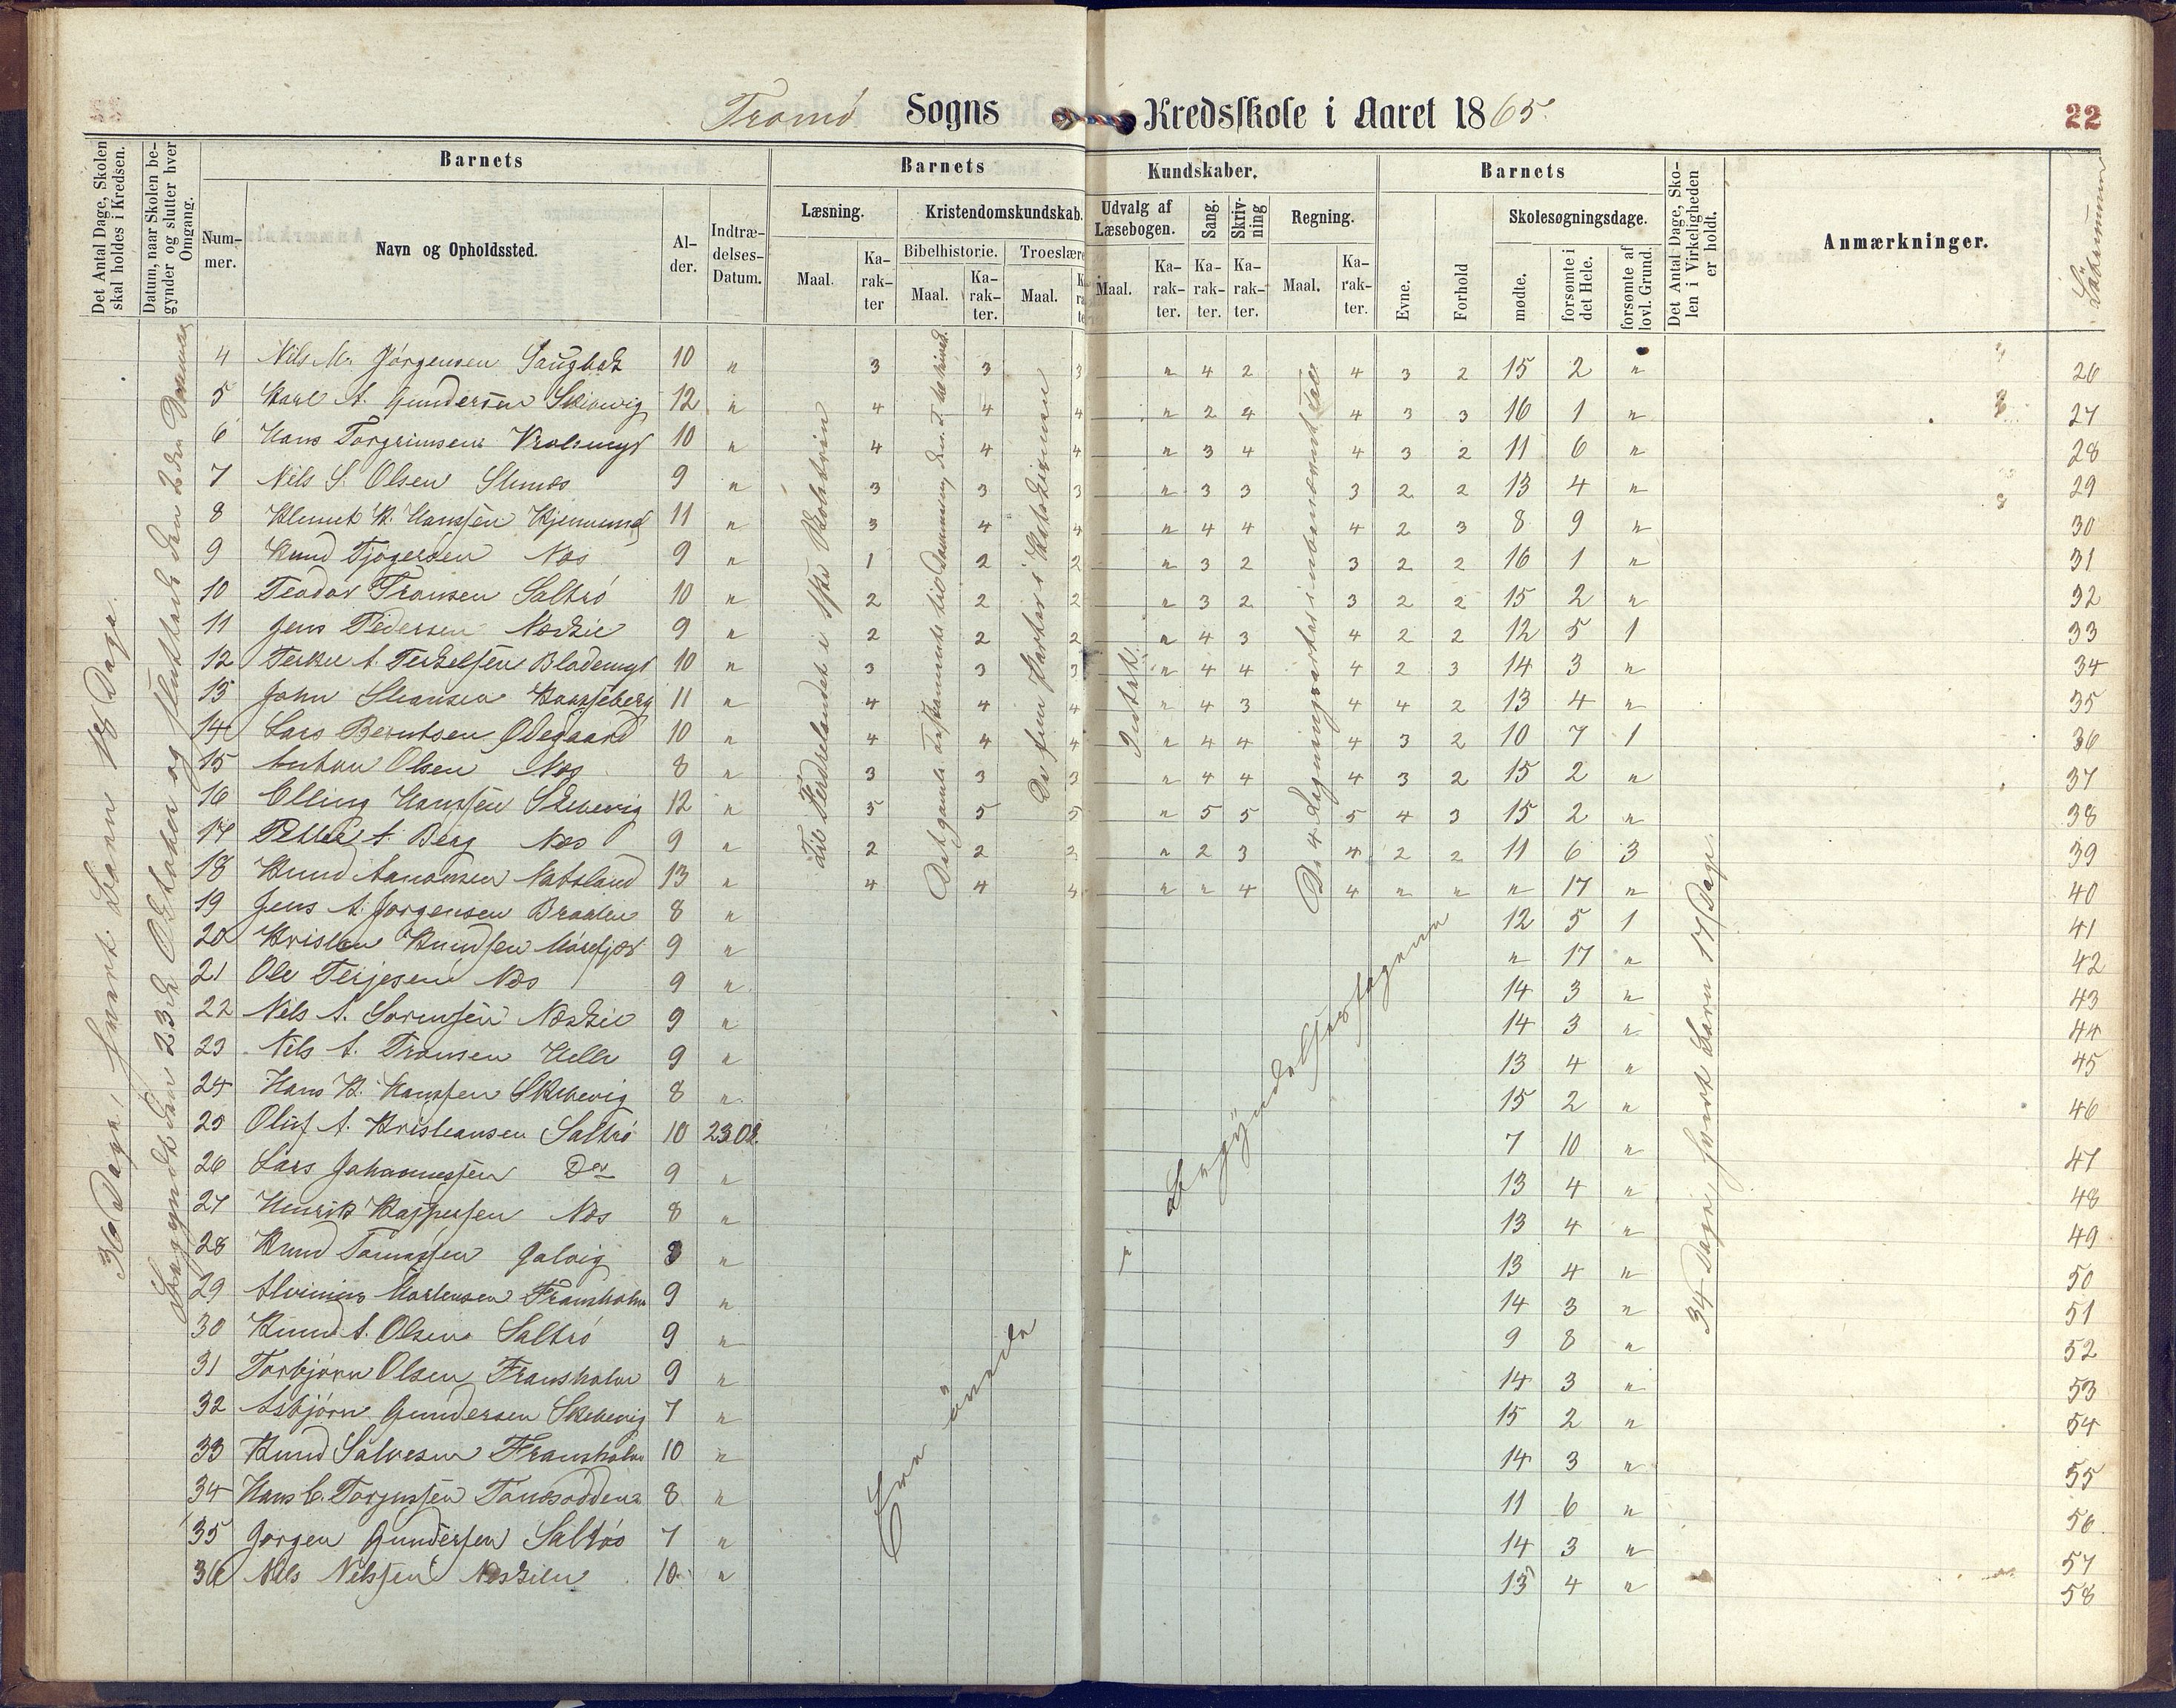 Tromö Sogns Kredsskole i Aaret 1865. 22
Det Antal Dage, Skolen skal holdes i Kredsen.
Datum, naar Skolen begynder og slutter hver Omgang.
Barnets
Nummer.
Navn og Opholdssted.
Alder.
Indtrædelses-Datum.
Barnets Kundskaber.
Læsning.
Maal. Karakter
Kristendomskundskab.
Bibelhistorie.
Maal. Karakter.
Troeslære
Maal.
Udvalg af Læsebogen.
Maal. Karakter.
Sang. Karakter.
Skrivning Karakter.
Regning.
Maal. Karakter.
Barnets
Evne.
Forhold
Skolesøgningsdage.
mødte.
forsømte i det Hele.
forsømte af lovl. Grund.
Det Antal Dage, Skolen i Virkeligheden er holdt.
Anmærkninger.
36 Dage, hvert Barn 18 Dage.
Begyndt den 23de Oktober og sluttet den
i Skolebrevet
Det gamle Testamente til
De fem Parter i Katekismen
De 4 Regningsarter i ubenævnte Tal
34 Dage, hvert Barn 17 Dage.
Begyndelsesfagene
4 Nils M. Jörgensen 10 " 3 3 3 " 4 2 4 3 2 15 2 " 26
5 Karl A. Gundersen Skibevig 12 " 4 4 4 " 2 4 4 3 3 16 1 " 27
6 Hans Torgrimsen 10 " 4 4 4 " 3 4 4 3 2 11 6 " 28
7 Nils S. Olsen 9 " 3 3 3 " 3 3 3 2 2 13 4 " 29
8 K. Hanssen 11 " 3 4 4 " 4 4 4 2 3 8 9 " 30
9 Knud Tjögersen Næs 9 " 1 2 2 " 3 2 3 2 2 16 1 " 31
10 Teodor Fransen Saltrö 10 " 2 2 2 " 3 2 3 2 2 15 2 " 32
11 Jens Pedersen Næskil 9 " 2 2 2 " 4 3 4 2 2 12 5 1 33
12 A. Terkelsen 10 " 3 3 3 " 4 4 4 2 3 14 3 " 34
13 John 11 " 4 4 4 " 4 3 4 4 2 13 4 " 35
14 Lars Berntsen Ödegaard 10 " 4 4 4 " 4 4 4 3 2 10 7 1 36
15 Anton Olsen Næs 8 " 3 3 3 " 4 4 4 3 2 15 2 " 37
16 Elling Hanssen Skibevig 12 " 5 5 5 " 5 5 5 4 3 15 2 " 38
17 A. Berg Næs 9 " 2 2 2 " 2 3 4 2 2 11 6 3 39
18 Knud Aanonsen Natsland 13 " 4 4 4 " " 4 4 " " " 17 " 40
19 Jens A. Jörgensen Braaten 8 " 12 5 1 41
20 Kristen Knudsen Mörefjær 9 " " 17 " 42
21 Ole Terjesen Næs 9 " 14 3 " 43
22 Nils A. Sörensen Næskil 9 " 14 3 " 44
23 Nils A. Fransen Helle 9 " 13 4 " 45
24 Hans K. Hanssen Skibevig 8 " 15 2 " 46
25 Oluf A. Kristiansen Saltrö 10 23 Ok. 7 10 " 47
26 Lars Johannessen Do 9 " 13 4 " 48
27 Henrik Kaspersen Næs 8 " 13 4 " 49
28 Knud Tomassen Galvig 8 " 13 4 " 50
29 Mortensen Fransholm 9 " 14 3 " 51
30 Knud A. Olsen Saltrö 9 " 9 8 " 52
31 Torbjörn Olsen Fransholm 9 " 14 3 " 53
32 Asbjörn Gundersen Skibevig 7 " 15 2 " 54
33 Knud Salvesen Fransholm 10 " 14 3 " 55
34 Hans C. Torjussen 8 " 11 6 " 56
35 Jörgen Gundersen Saltrö 7 " 14 3 " 57
36 Nils Nilssen Næskilen 10 " 13 4 " 58